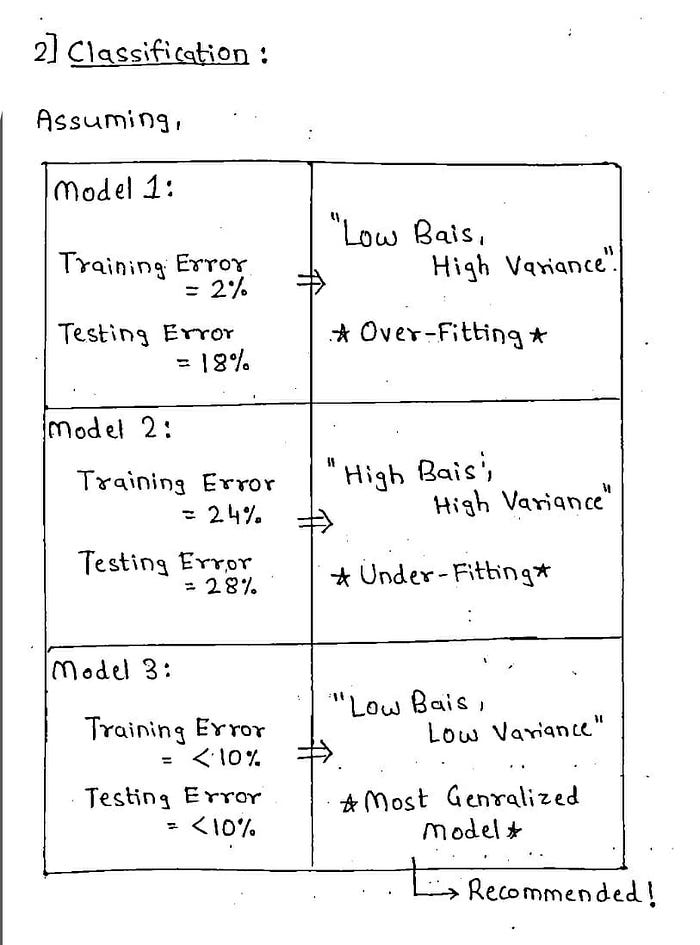 2] Classification :
Assuming,
Model 1:
Training Error
= 2%
Testing Error
= 18%
⇒
"Low Bais,
High Variance".
★ Over-Fitting ★
Model 2:
Training Error
= 24%
Testing Error
= 28%
⇒
"High Bais,
High Variance"
★ Under-Fitting ★
Model 3:
Training Error
= <10%
Testing Error
= <10%
⇒
"Low Bais,
Low Variance"
★ Most Genralized
Model ★
↳ Recommended!